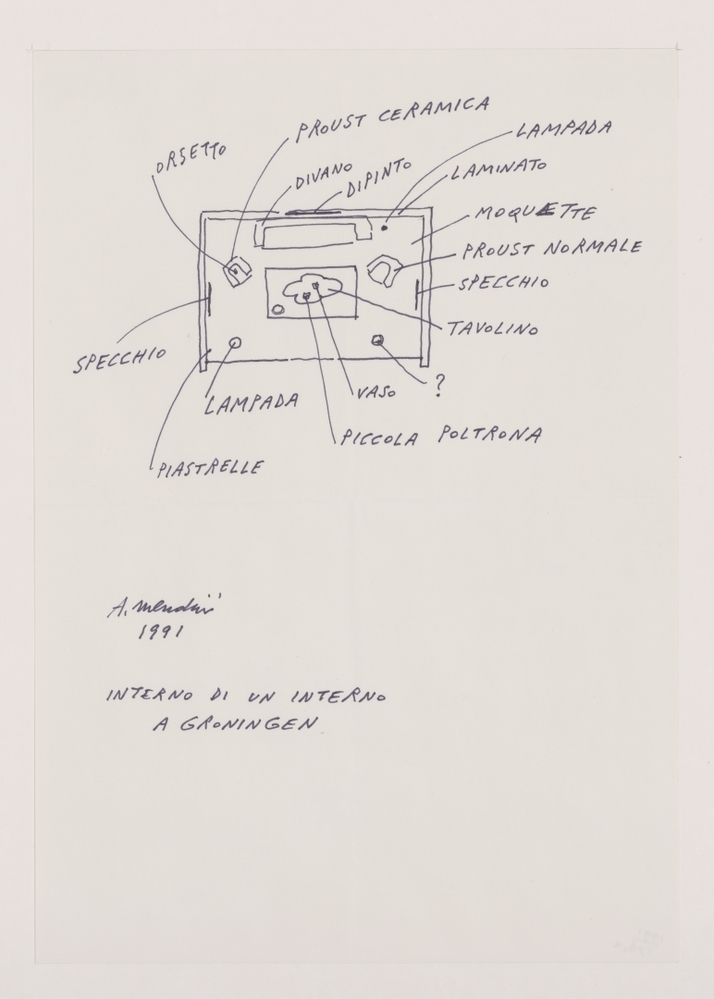 PROUST CERAMICA
LAMPADA
ORSETTO
DIVANO
DIPINTO
LAMINATO
MOQUETTE
PROUST NORMALE
SPECCHIO
TAVOLINO
SPECCHIO
LAMPADA
VASO
?
PICCOLA POLTRONA
PIASTRELLE
A. Mendini
1991
INTERNO DI UN INTERNO
A GRONINGEN